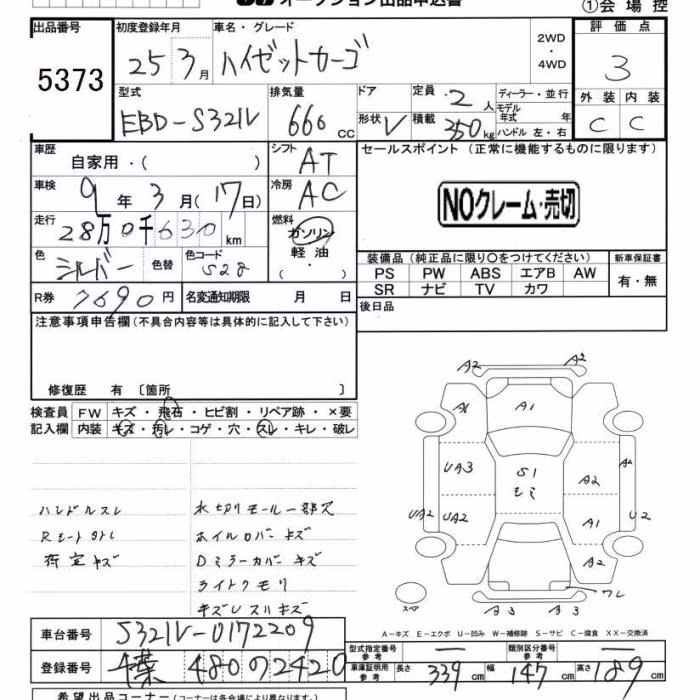 オークション出品申込書
①会場控
出品番号 初度登録年月 車名・グレード 2WD・4WD 評価点
5373 25 3月 ハイゼットカーゴ 3
型式 排気量 ドア 定員 2人 ディーラー・並行 外装 内装
EBD-S321V 660cc 形状 V 積載 350kg モデル年式 年 ハンドル 左・右 C C
車歴 自家用・( ) シフト AT セールスポイント (正常に機能するものに限ります)
車検 9年3月(17日) 冷房 AC
NOクレーム・売切
走行 28万0千630km 燃料 ガソリン・軽油 ( ・ )
色 シルバー 色替 色コード S28
装備品 (純正品に限り〇をつけてください) 新車保証書
PS PW ABS エアB AW 有・無
SR ナビ TV カワ
R券 7690円 名変通知期限 月 日
後日品
注意事項申告欄(不具合内容等は具体的に記入して下さい)
修復歴 有 〔箇所 〕
検査員 FW キズ・飛石・ヒビ割・リペア跡・×要
記入欄 内装 キズ・汚レ・コゲ・穴・スレ・キレ・破レ
ハンドルスレ 水切りモール一部欠
Rシートヨゴレ ホイルカバーキズ
荷室キズ Dミラーカバーキズ
ライトクモリ
キズUスリキズ
A2 A2
A1 A1
UA3 S1 A2 A2
モミ
UA2 UA2 A1 U2
A2
ワレ
スペア A3 A3
A-キズ E-エクボ U-凹み W-補修跡 S-サビ C-腐食 XX-交換済
車台番号 S321V-0172209
型式指定番号 参考 類別区分番号 参考
登録番号 千葉 480の2420
車庫証明用参考 長さ 339cm 幅 147cm 高さ 189cm
希望出品コーナー(コーナーは各会場により異なります)